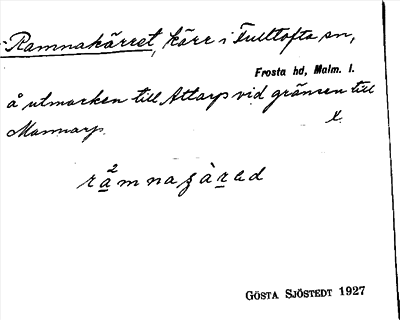 Ramnakärret, kärr i Fulltofta sn,
Frosta hd, Malm. l.
å utmarken till Attarp vid gränsen till
Mannarp. l.
GÖSTA SJÖSTEDT 1927